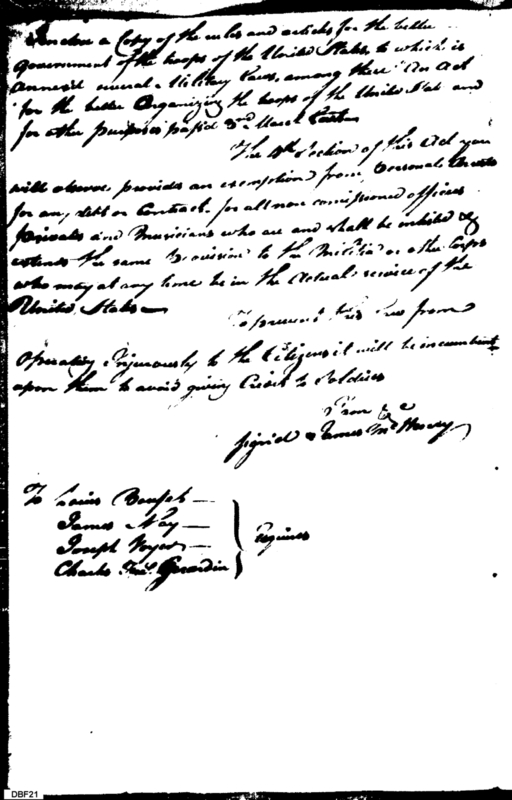 Enclose a Copy of the rules and articles for the better
government of the troops of the United States, to which is
annexed several Military Laws, among these "An Act
"for the better Organizing the troops of the United Stat and
for other purposes pass'd 3rd March
The 4th Section of this Act you
will observe provides an exemption from personal Arrests
for any debt or Contract, for all non comissioned officers
Privates and Musicians who are and shall be inlisted &
extends the same Provision to the Militia or other Corps
who may at any time be in the Actual service of the
United States
To prevent this Law from
Operating Injuriously to the Citizens it will be incumbent
upon them to avoid giving Credit to Soldiers
&c
Sign'd James McHenry
To Louis
James May
Joseph Voyer
Charles Girardin
Esquires
DBF21